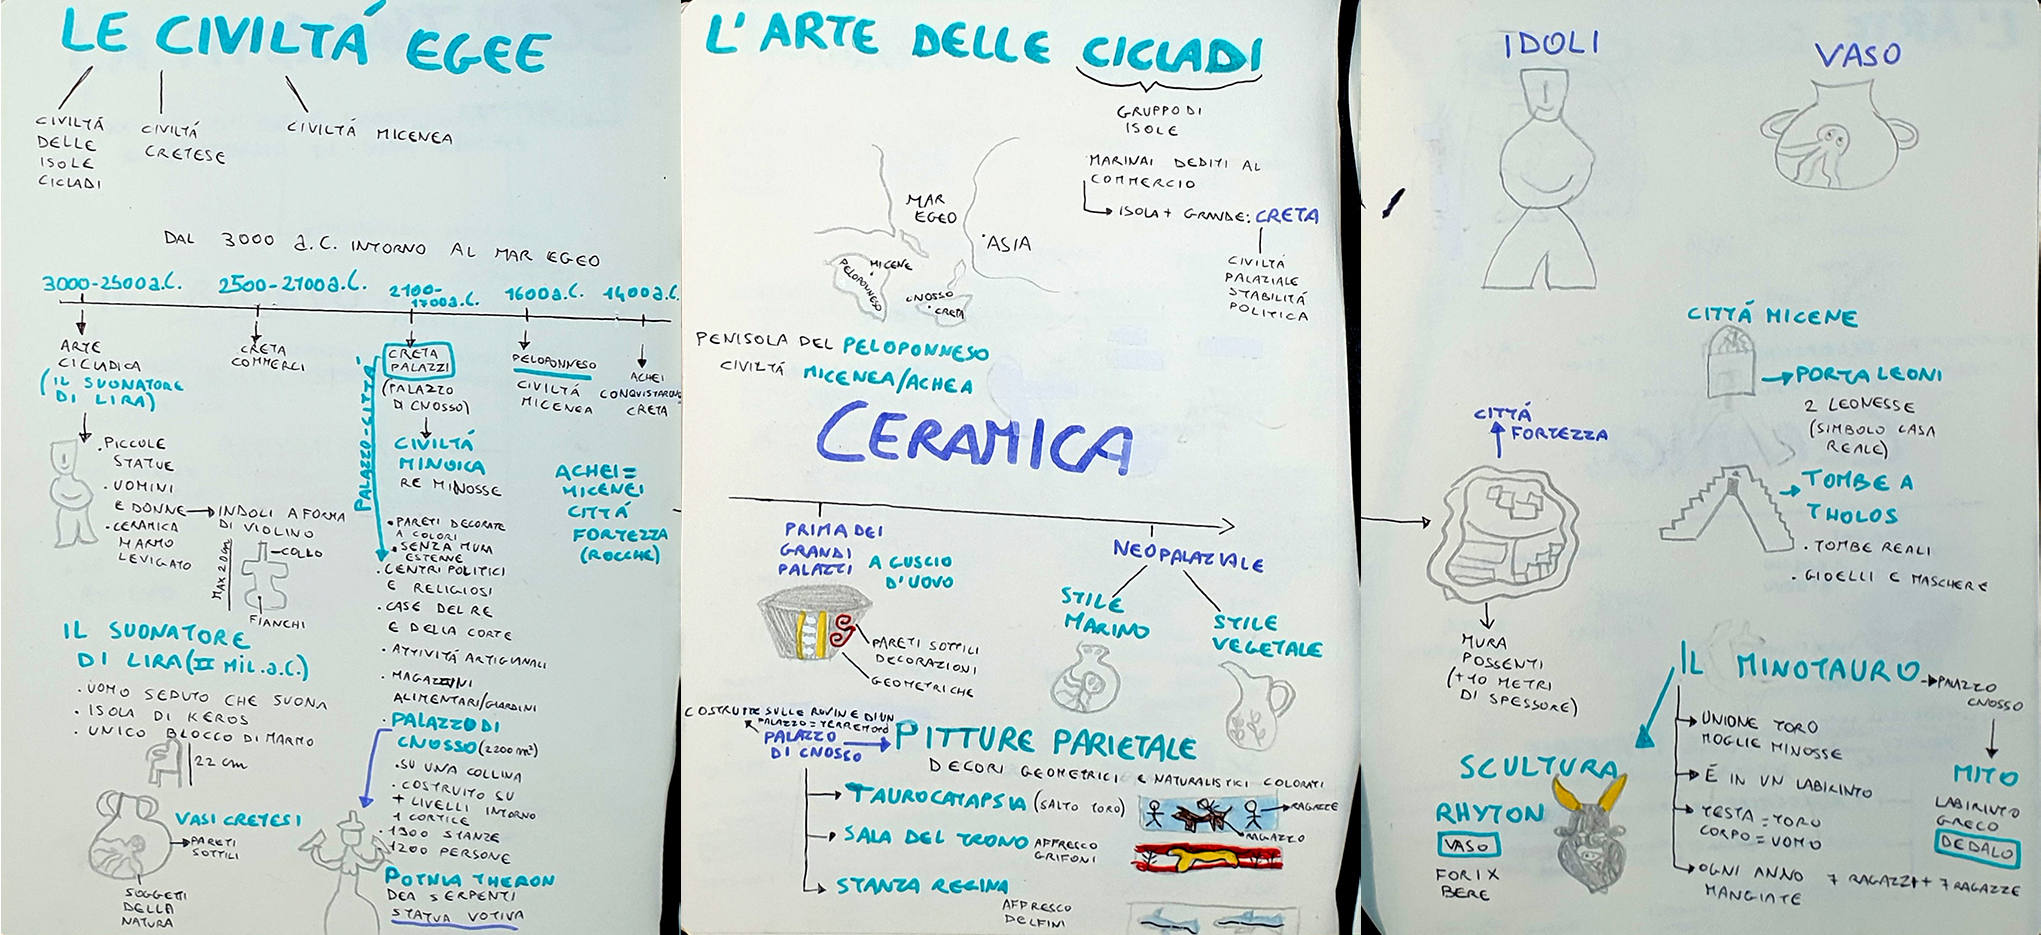 LE CIVILTÁ EGEE
CIVILTÁ
DELLE
ISOLE
CICLADI
CIVILTÁ
CRETESE
CIVILTÁ MICENEA
DAL 3000 a.C. INTORNO AL MAR EGEO
3000-2500a.C.
2500-2100a.C.
2100-
1700a.C.
1600a.C.
1400a.C.
ARTE
CICLADICA
(IL SUONATORE
DI LIRA)
CRETA
COMMERCI
CRETA
PALAZZI
(PALAZZO
DI CNOSSO)
PELOPONNESO
CIVILTÁ
MICENEA
ACHEI
CONQUISTARONO
CRETA
PALAZZO-CITTÁ
. PICCOLE
STATUE
. UOMINI
E DONNE
. CERAMICA
MARMO
LEVIGATO
INDOLI A FORMA
DI VIOLINO
COLLO
MAX 20cm
FIANCHI
CIVILTÁ
MINOICA
RE MINOSSE
. PARETI DECORATE
A COLORI
. SENZA MURA
ESTERNE
. CENTRI POLITICI
E RELIGIOSI
. CASE DEL RE
E DELLA CORTE
. ATTIVITÁ ARTIGIANALI
. MAGAZZINI
ALIMENTARI/GIARDINI
. PALAZZO DI
CNOSSO (2200 m²)
. SU UNA COLLINA
. COSTRUITO SU
+ LIVELLI INTORNO
1 CORTILE
. 1300 STANZE
1200 PERSONE
ACHEI =
MICENEI
CITTÁ
FORTEZZA
(ROCCHE)
IL SUONATORE
DI LIRA (II MIL.a.C.)
. UOMO SEDUTO CHE SUONA
. ISOLA DI KEROS
. UNICO BLOCCO DI MARMO
22 cm
VASI CRETESI
PARETI
SOTTILI
SOGGETTI
DELLA
NATURA
POTNIA THERON
DEA SERPENTI
STATUA VOTIVA
L'ARTE DELLE CICLADI
GRUPPO DI
ISOLE
MARINAI DEDITI AL
COMMERCIO
ISOLA + GRANDE: CRETA
CIVILTÁ
PALAZIALE
STABILITÁ
POLITICA
MAR
EGEO
. ASIA
MICENE
PELOPONNESO
CNOSSO
. CRETA
PENISOLA DEL PELOPONNESO
CIVILTÁ MICENEA/ACHEA
CERAMICA
PRIMA DEI
GRANDI
PALAZZI
A GUSCIO
D'UOVO
NEOPALAZIALE
STILE
MARINO
STILE
VEGETALE
PARETI SOTTILI
DECORAZIONI
GEOMETRICHE
COSTRUITE SULLE ROVINE DI UN
PALAZZO = TERREMOTO
PALAZZO
DI CNOSSO
PITTURE PARIETALE
DECORI GEOMETRICI E NATURALISTICI COLORATI
TAUROCATAPSIA (SALTO TORO)
RAGAZZE
RAGAZZO
SALA DEL TRONO AFFRESCO
GRIFONI
STANZA REGINA
AFFRESCO
DELFINI
IDOLI
VASO
CITTÁ MICENE
PORTA LEONI
2 LEONESSE
(SIMBOLO CASA
REALE)
CITTÁ
FORTEZZA
TOMBE A
THOLOS
. TOMBE REALI
. GIOELLI E MASCHERE
MURA
POSSENTI
(+10 METRI
DI SPESSORE)
IL MINOTAURO
PALAZZO
CNOSSO
UNIONE TORO
MOGLIE MINOSSE
É IN UN LABIRINTO
TESTA = TORO
CORPO = UOMO
OGNI ANNO 7 RAGAZZI + 7 RAGAZZE
MANGIATE
MITO
LABIRINTO
GRECO
DEDALO
SCULTURA
RHYTON
VASO
FORI X
BERE